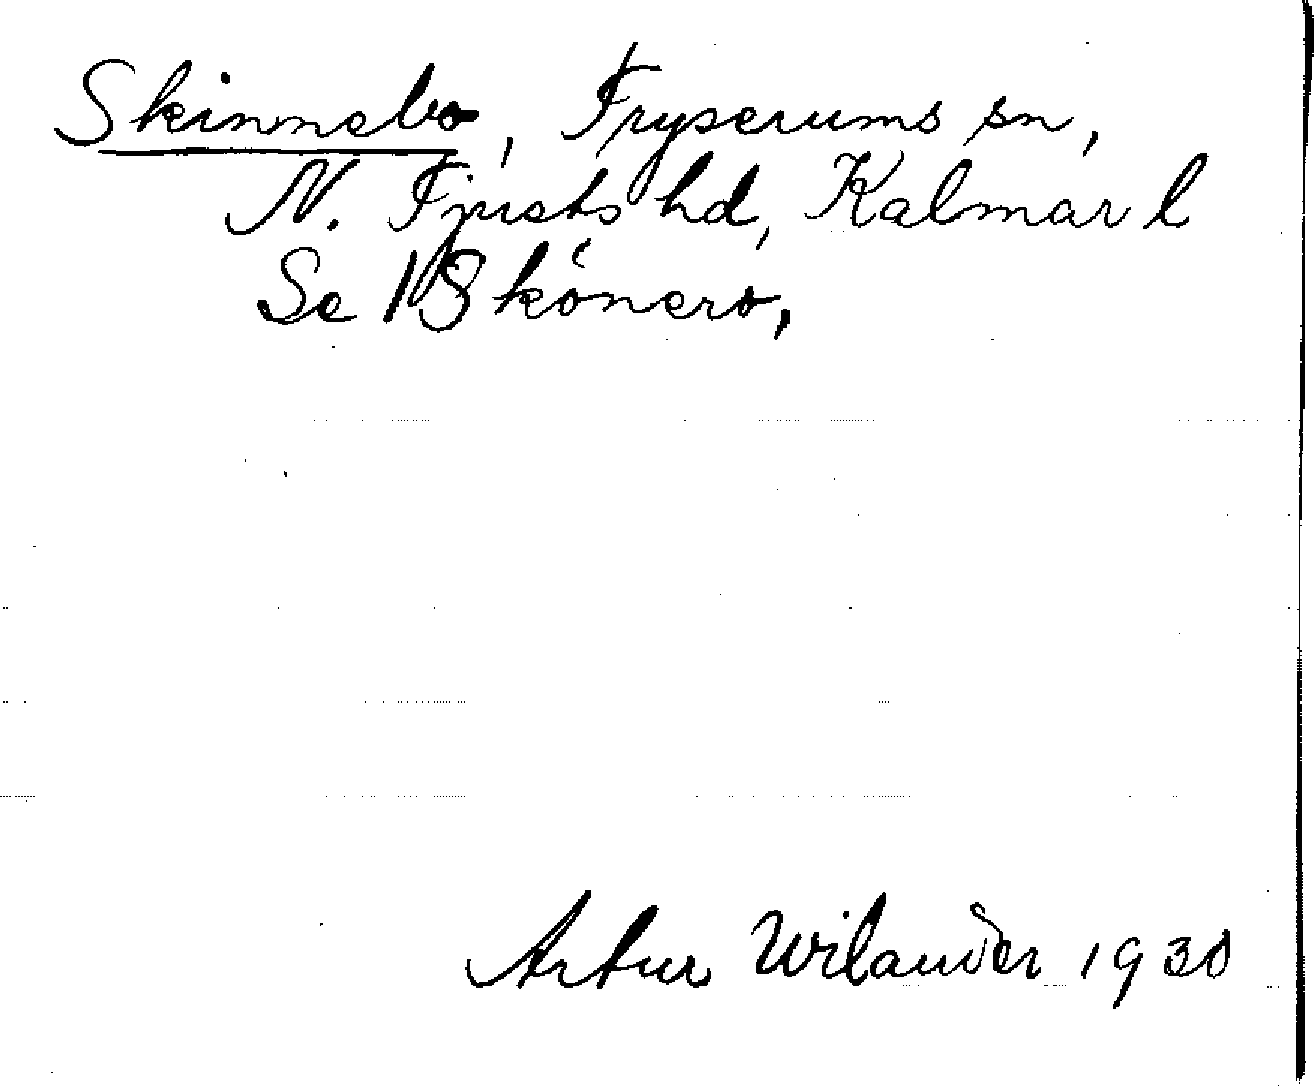 Skinnebo, Tryserums sn,
N. Tjusts hd, Kalmar l
Se 1 Skönero,
Artur Wilander 1930